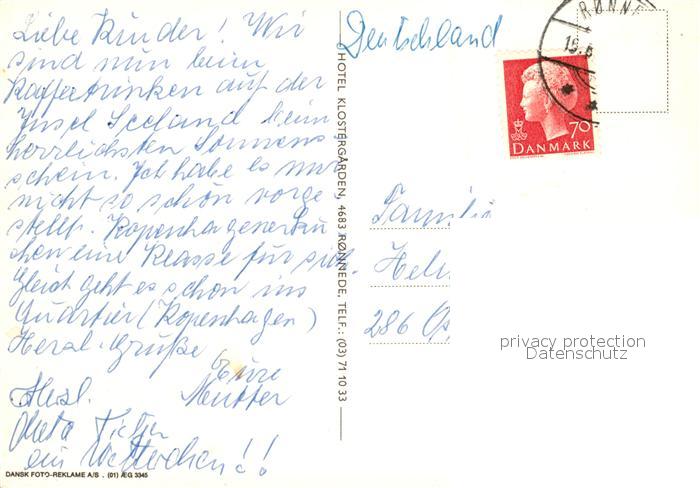 Liebe Kinder! Wir
sind nun beim
Kaffeetrinken auf der
Insel Seeland beim
herrlichsten Sonnen-
schein. Ich habe es mir
nicht so schön vorge-
stellt. Kopenhagener
chen eine Klasse für sich.
Gleich geht es schon ins
Quartier (Kopenhagen)
Herzl. Grüße
Eure
Mutter
Herzl.
ein
Deutschland
HOTEL KLOSTERGÅRDEN, 4683 RØNNEDE. TELF.: (03) 71 10 33
RØNNE
19.6
70
DANMARK
Famili
Helm
286 Os
privacy protection
Datenschutz
DANSK FOTO-REKLAME A/S . (01) ÆG 3345